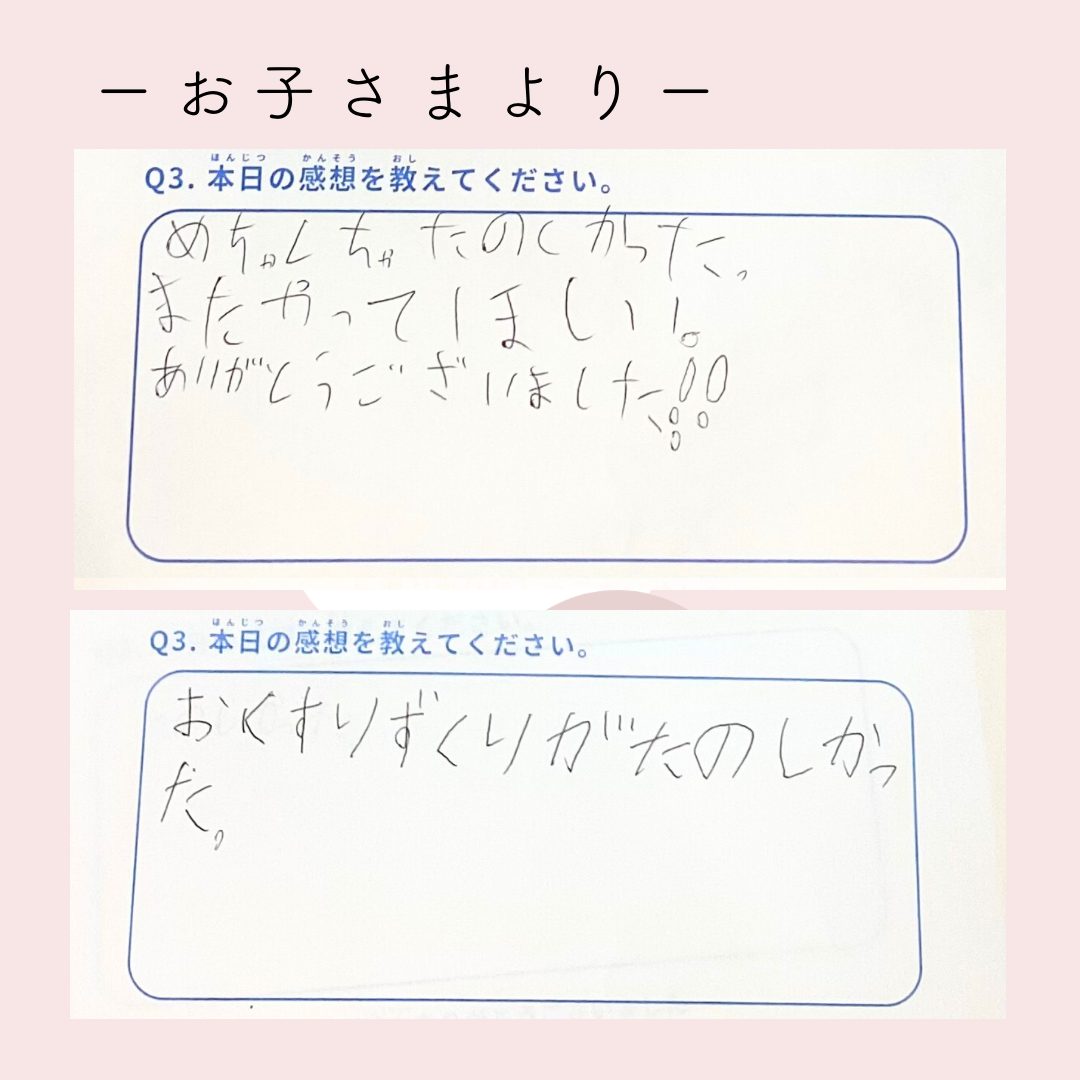 ーお子さまよりー
ほんじつ かんそう おし
Q3. 本日の感想を教えてください。
めちゃくちゃたのしかった。
またやってほしい!。
ありがとうございました!!!
ほんじつ かんそう おし
Q3. 本日の感想を教えてください。
おくすりずくりがたのしかっ
た。